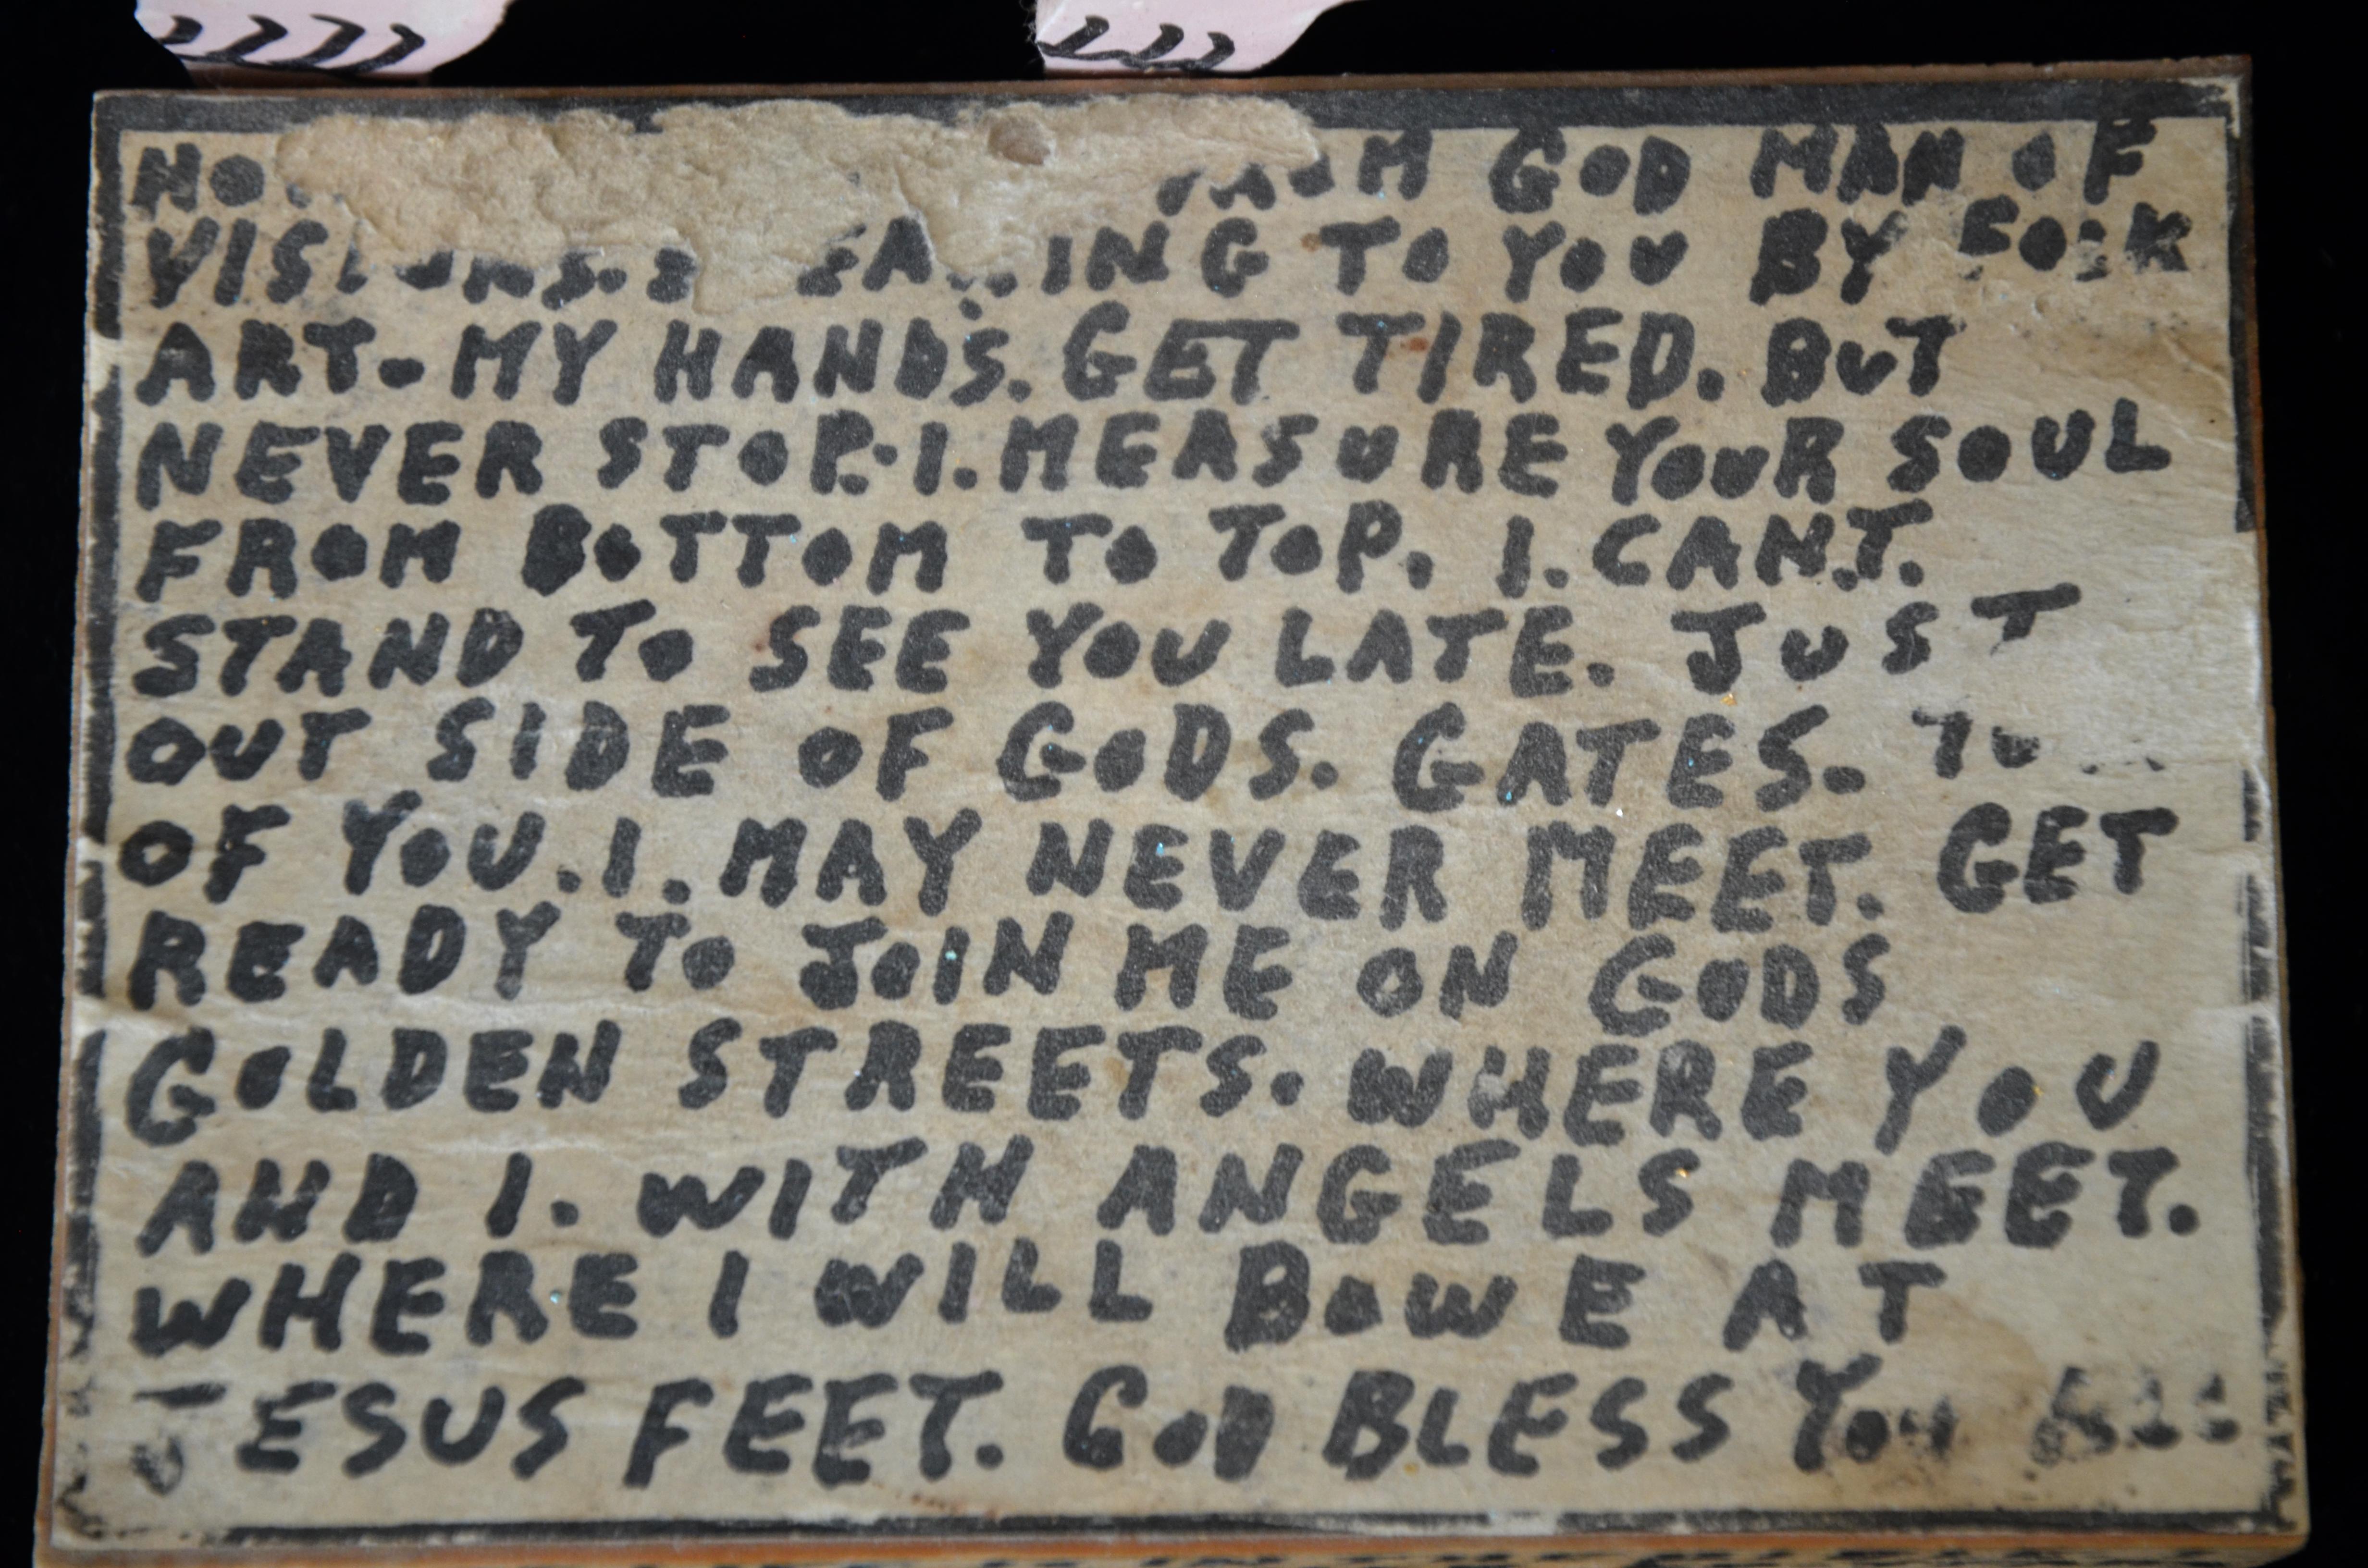 GOD MAN OF
TO YOU BY
ART- MY HANDS. GET TIRED. BUT
NEVER STOP. I. MEASURE YOUR SOUL
FROM BOTTOM TO TOP. I. CANT.
STAND TO SEE YOU LATE. JUST
OUT SIDE OF GODS. GATES.
OF YOU. I. MAY NEVER MEET. GET
READY TO JOIN ME ON GODS
GOLDEN STREETS. WHERE YOU
AND I. WITH ANGELS MEET.
WHERE I WILL BOWE AT
JESUS FEET. GOD BLESS YOU